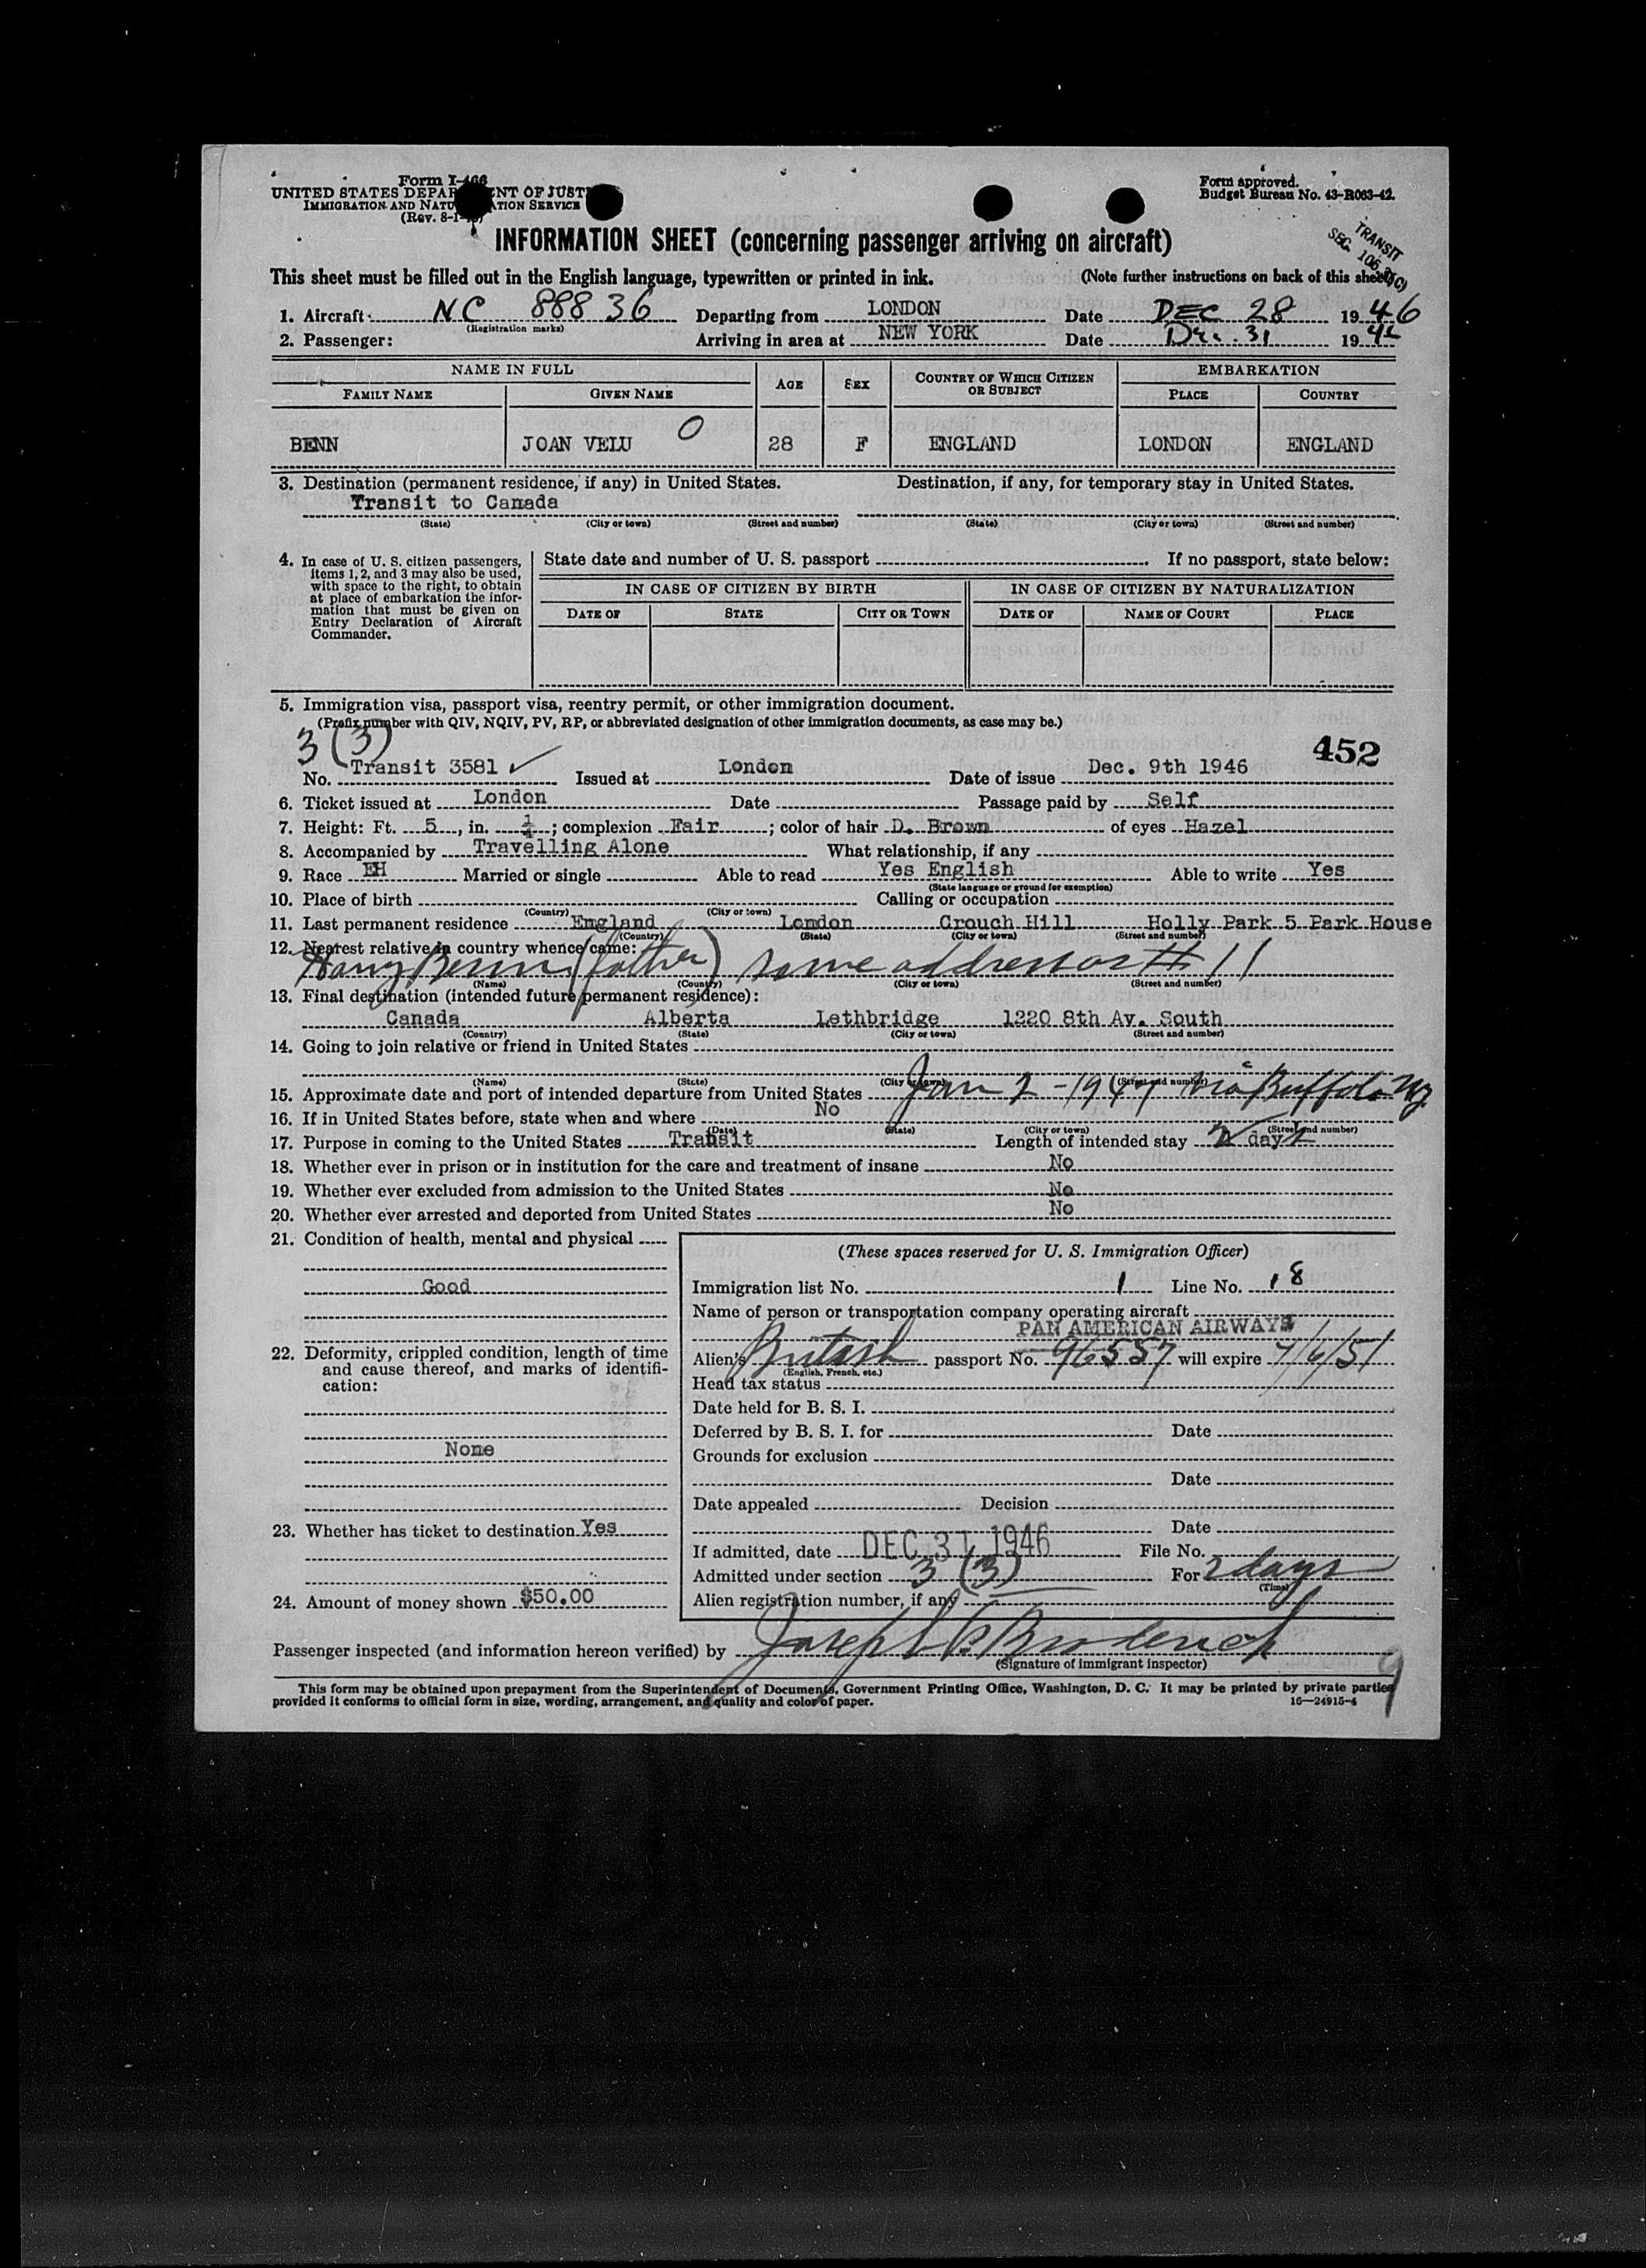 Form I-466
UNITED STATES DEPARTMENT OF JUSTICE
IMMIGRATION AND NATURALIZATION SERVICE
(Rev. 8-1-
Form approved.
Budget Bureau No. 43-R063-42.
TRANSIT
SEC. 106.3(C)
INFORMATION SHEET (concerning passenger arriving on aircraft)
This sheet must be filled out in the English language, typewritten or printed in ink. (Note further instructions on back of this sheet)
1. Aircraft NC 88836 Departing from LONDON Date DEC 28 1946
(Registration marks)
2. Passenger: Arriving in area at NEW YORK Date Dec. 31 194
NAME IN FULL AGE SEX COUNTRY OF WHICH CITIZEN OR SUBJECT EMBARKATION
FAMILY NAME GIVEN NAME PLACE COUNTRY
BENN JOAN VELU O 28 F ENGLAND LONDON ENGLAND
3. Destination (permanent residence, if any) in United States. Destination, if any, for temporary stay in United States.
Transit to Canada
(State) (City or town) (Street and number) (State) (City or town) (Street and number)
4. In case of U. S. citizen passengers, items 1, 2, and 3 may also be used, with space to the right, to obtain at place of embarkation the information that must be given on Entry Declaration of Aircraft Commander.
State date and number of U. S. passport If no passport, state below:
IN CASE OF CITIZEN BY BIRTH IN CASE OF CITIZEN BY NATURALIZATION
DATE OF STATE CITY OR TOWN DATE OF NAME OF COURT PLACE
5. Immigration visa, passport visa, reentry permit, or other immigration document.
(Prefix number with QIV, NQIV, PV, RP, or abbreviated designation of other immigration documents, as case may be.)
3 (3)
452
No. Transit 3581 ✓ Issued at London Date of issue Dec. 9th 1946
6. Ticket issued at London Date Passage paid by Self
7. Height: Ft. 5, in. ; complexion Fair; color of hair D. Brown of eyes Hazel
8. Accompanied by Travelling Alone What relationship, if any
9. Race EH Married or single Able to read Yes English Able to write Yes
(State language or ground for exemption)
10. Place of birth Calling or occupation
(Country) (City or town)
11. Last permanent residence England London Crouch Hill Holly Park 5 Park House
(Country) (State) (City or town) (Street and number)
12. Nearest relative in country whence came:
Harry Benn (father) same address as # 11
(Name) (Country) (City or town) (Street and number)
13. Final destination (intended future permanent residence):
Canada Alberta Lethbridge 1220 8th Av. South
(Country) (State) (City or town) (Street and number)
14. Going to join relative or friend in United States
(Name) (State) (City or town) (Street and number)
15. Approximate date and port of intended departure from United States Jan 2 - 1947 via Buffalo NY
16. If in United States before, state when and where No
(Date) (State) (City or town) (Street and number)
17. Purpose in coming to the United States Transit Length of intended stay 2 days
18. Whether ever in prison or in institution for the care and treatment of insane No
19. Whether ever excluded from admission to the United States No
20. Whether ever arrested and deported from United States No
21. Condition of health, mental and physical
Good
22. Deformity, crippled condition, length of time and cause thereof, and marks of identification:
None
23. Whether has ticket to destination Yes
24. Amount of money shown $50.00
(These spaces reserved for U. S. Immigration Officer)
Immigration list No. 1 Line No. 18
Name of person or transportation company operating aircraft
PAN AMERICAN AIRWAYS
Alien's British passport No. 96557 will expire 7/6/51
(English, French, etc.)
Head tax status
Date held for B. S. I.
Deferred by B. S. I. for Date
Grounds for exclusion
Date
Date appealed Decision
Date
If admitted, date DEC 31 1946 File No.
Admitted under section 3 (3) For 2 days
(Time)
Alien registration number, if any
Passenger inspected (and information hereon verified) by Joseph P. Broderick
(Signature of immigrant inspector)
9
This form may be obtained upon prepayment from the Superintendent of Documents, Government Printing Office, Washington, D. C. It may be printed by private parties
provided it conforms to official form in size, wording, arrangement, and quality and color of paper. 16—24915-4